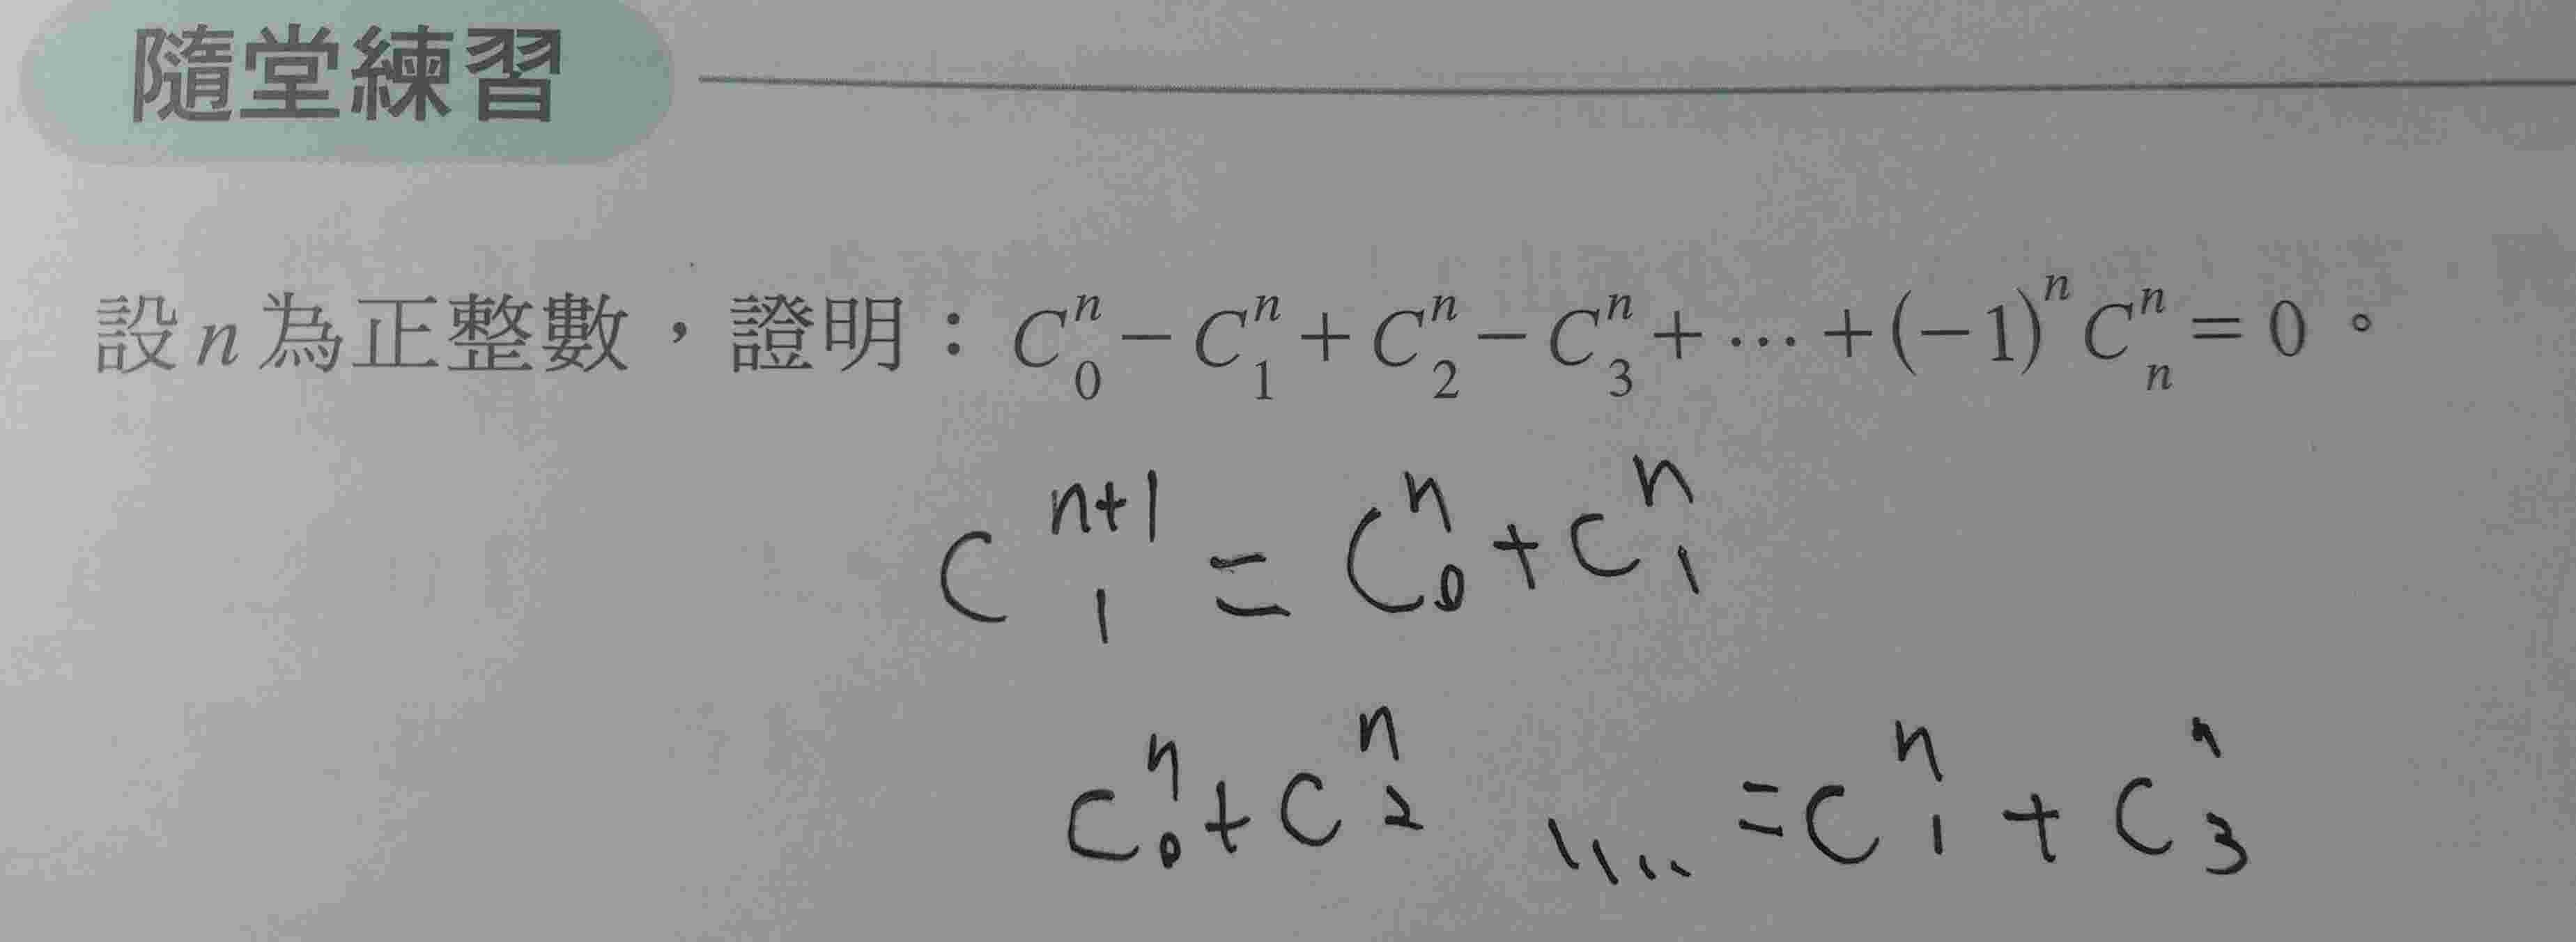 隨堂練習
設n為正整數，證明：C₀ⁿ－C₁ⁿ＋C₂ⁿ－C₃ⁿ＋⋯＋(－1)ⁿCₙⁿ＝0。
C₁ⁿ⁺¹ = C₀ⁿ + C₁ⁿ
C₀ⁿ + C₂ⁿ ..... = C₁ⁿ + C₃ⁿ